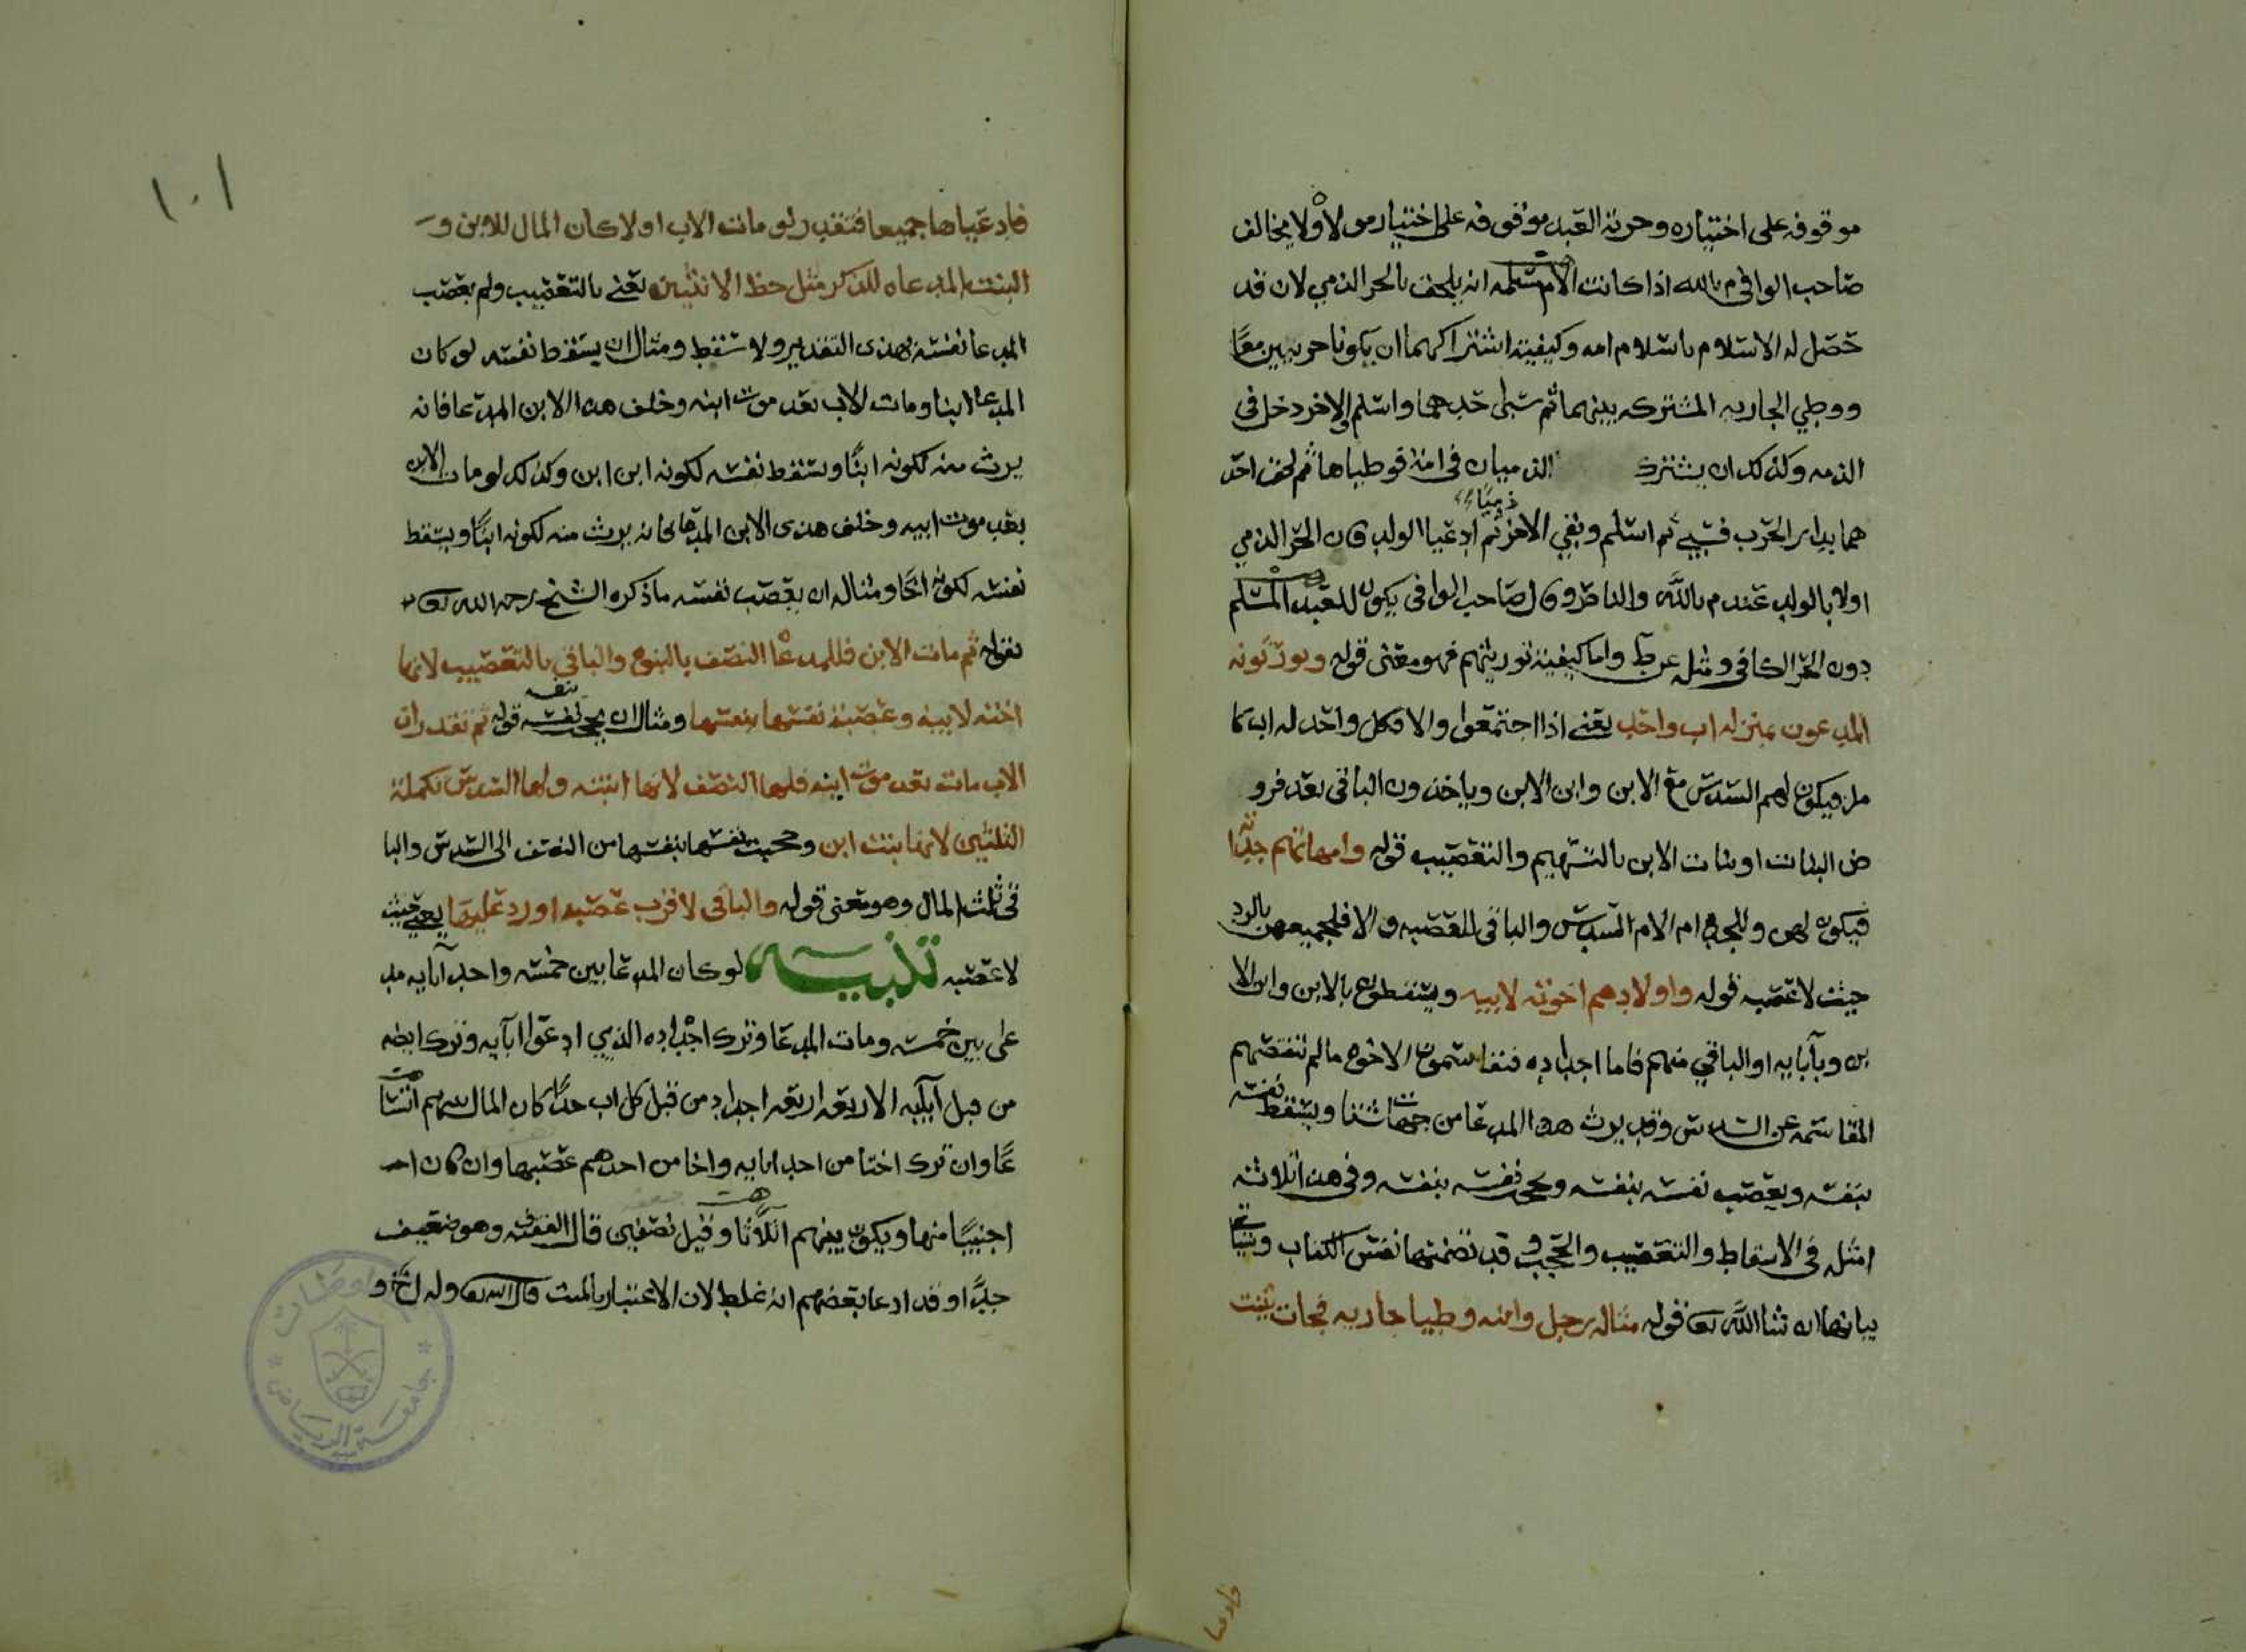 موقوفه على اختياره وحرية العبد موقوفه على اختيار مولاه ولا يخالف
صاحب الوافي م بالله اذا كانت الام مسلمه انه يلحق بالحر الذمي لان قد
حصل له الاسلام باسلام امه وكيفية اشتراكهما ان يكونا حربيين معًا
ووطي الجاريه المشتركه بينهما ثم سبى احدهما واسلم الاخر دخل في
الذمه وكذلك ان يشترك الذميان في امة فوطياها ثم لحق احد
هما بدار الحرب فسبي ثم اسلم وبقي الاخر ذميًا ثم ادعيا الولد كان الحر الذمي
اولا بالولد عند م بالله والناصر وقال صاحب الوافي يكون للعبد المسلم
دون الحر الكافر ومثله عن ط واما كيفية توريثهم فهو معنى قوله ويورثونه
المدعون بمنزله اب واحد يعني اذا اجتمعوا والا فكل واحد له اب كا
مل فيكون لهم السدس مع الابن وابن الابن وياخذون الباقي بعد فرو
ض البنات او بنات الابن بالتسهيم والتعصيب قوله وامهاتهم جداته
فيكون لهن وللجده ام الام السدس والباقي للعصبه والا فلجميعهن بالرد
حيث لا عصبه قوله واولادهم اخوته لابيه ويسقطون بالابن وابن الا
بن وبآبايه او الباقي منهم فاما اجداده فتقاسمون الاخوه ما لم تنقصهم
المقاسمه عن السدس وقد يرث هذا المدعا من جهات شتا ويسقط نفسه
بنفسه ويعصب نفسه بنفسه ويحجب نفسه بنفسه وفي هذا ثلاثه
امثله في الاسقاط والتعصيب والحجب وقد تضمنتها نفس الكتاب وسياتي
بيانها ان شا الله تعا قوله مثاله رجل وابنه وطيا جاريه فجات ببنت
فادعيا
فادعياها جميعا فتقدر لو مات الاب اولا كان المال للابن و
البنت المدعاه للذكر مثل حظ الانثيين يعني بالتعصيب ولم يعصب
المدعا نفسه بهذى التقدير ولا سقط ومثال ان يسقط نفسه لو كان
المدعا ابنا ومات الاب بعد موت ابنه وخلف هذا الابن المدعا فانه
يرث منه لكونه ابنًا ويسقط نفسه لكونه ابن ابن وكذلك لو مات الابن
بعد موت ابيه وخلف هذى الابن المدعا فانه يرث منه لكونه ابنًا ويسقط
نفسه لكونه اخًا ومثاله ان يعصب نفسه ما ذكره الشيخ رحمه الله تعا
بقوله ثم مات الابن فللمدعاه النصف بالبنوه والباقي بالتعصيب لانها
اخته لابيه وعصبة نفسها بنفسها ومثال ان يحجب نفسه بنفسه قوله ثم تقدر ان
الاب مات بعد موت ابنه فلها النصف لانها ابنته ولها السدس تكملة
الثلثين لانها بنت ابن وحجبت نفسها بنفسها من النصف الى السدس والبا
قي ثلث المال وهو معنى قوله والباقي لاقرب عصبه او رد عليها يعني حيث
لا عصبه تنبيه لو كان المدعا بين خمسه واحد آبايه مد
على بين خمسه ومات المدعا وترك اجداده الذي ادعوا آبايه وترك ايضه
من قبل آبايه الاربعه اربعه اجداد من قبل كل اب جدًا كان المال بينهم اتسا
عًا وان ترك اختا من احد ابايه واخا من احدهم عصبها وان كان اخ
اجنبيًا منها ويكون بينهم اثلاثًا وقيل نصفين قال الفقيه وهو ضعيف
جدًا وقد ادعا بعضهم انه غلط لان الاعتبار بالميت قال الله تعا وله اخ او
١٠١
جامعة الرياض
مخطوطات